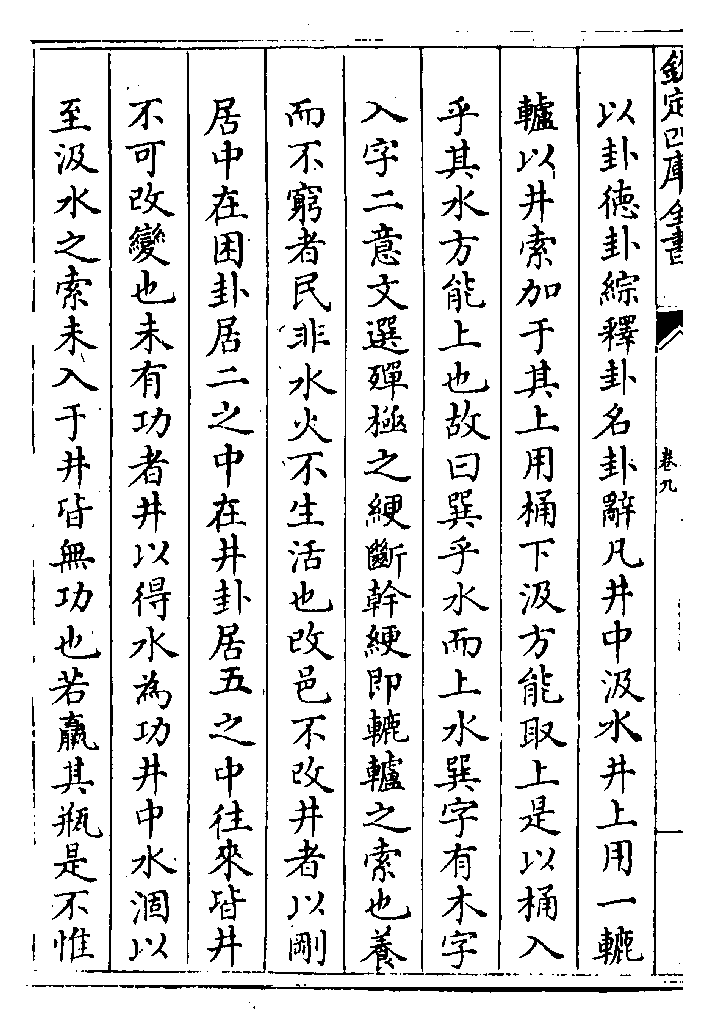 欽定四庫全書
卷九
以卦德卦綜釋卦名卦辭凡井中汲水井上用一轆
轤以井索加于其上用桶下汲方能取上是以桶入
乎其水方能上也故曰巽乎水而上水巽字有木字
入字二意文選殫極之綆斷幹綆即轆轤之索也養
而不窮者民非水火不生活也改邑不改井者以剛
居中在困卦居二之中在井卦居五之中往來皆井
不可改變也未有功者井以得水為功井中水涸以
至汲水之索未入于井皆無功也若羸其瓶是不惟